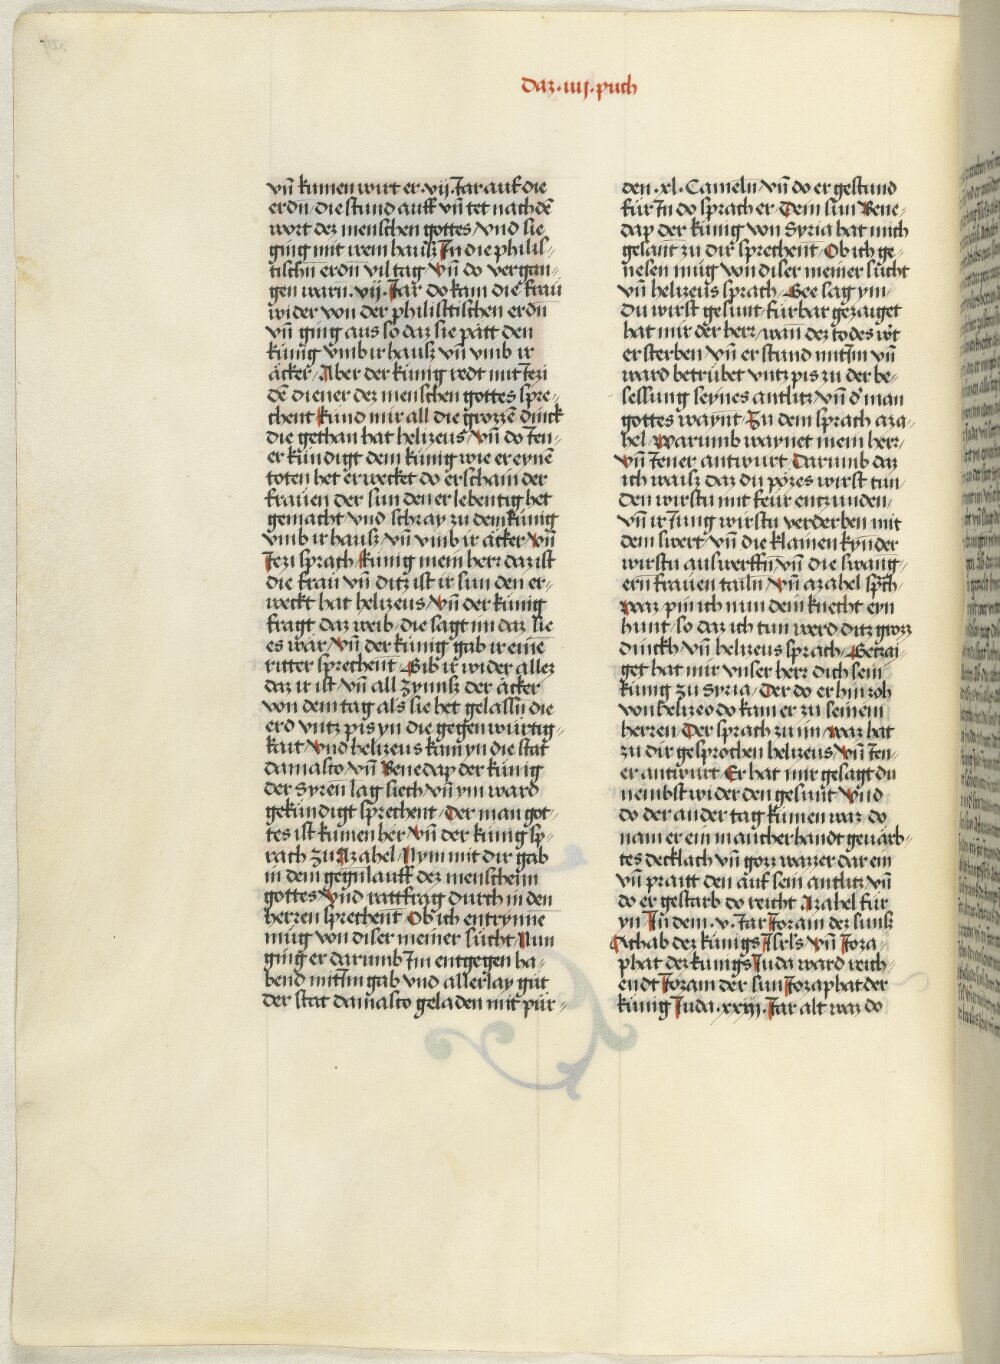 Daz ·iiij· puch
vn̄ kumen wirt er ·vij· Jar auf die
erdn̄ / die stund auff vn̄ tet nach dē
wort dez menschen gottes / vnd sie
ging mit irem hauß In die philis-
tischn̄ erdn̄ vil tag / vn̄ do vergan-
gen warn̄ · vij · Jar do kam die frau
wider von der philisttischen erdn̄
vn̄ ging aus so daz sie pätt den
künig vmb ir hauß vn̄ vmb ir
äcker / Aber der künig redt mit Jezi
dē diener dez menschen gottes spre-
chent kund mir all die grozzē dinck
die gethan hat helizeus / vn̄ do Jen-
er kündigt dem künig wie er eynē
toten het erwecket do erschain der
frauen der sun den er lebentig het
gemacht / vnd schray zu dem künig
vmb ir hauß / vn̄ vmb ir äcker / vn̄
Jezi sprach / künig mein herr daz ist
die frau vn̄ ditz ist ir sun den er-
weckt hat helizeus / vn̄ der künig
fragt daz weib / die sagt im daz sie
es wär / vn̄ der künig gab ir einē
ritter sprechent / Gib ir wider allez
daz ir ist / vn̄ all zynnß der äcker
von dem tag als sie het gelassn̄ die
erd vntz pis yn die gegenwürtig-
kait / vnd helizeus kam yn die stat
damasco / vn̄ Benedap der künig
der Syren lag siech / vn̄ ym ward
gekündigt sprechent / Der man got-
tes ist kumen her / vn̄ der künig sp-
rach zu Azahel / Nym mit dir gab
in dem gegnlauff dez menschein
gottes / vnd rattfrag durch in den
herren sprechent / Ob ich entrynne
müg von diser meiner sücht / Nun
ging er darumb Im entgegen ha-
bend mit Im gab vnd allerlay güt
der stat damasco geladen mit pür-
den · xl · Cameln / vn̄ do er gestund
für In do sprach er / Dem sun Bene-
dap der künig von Syria hat mich
gesant zu dir sprechent / Ob ich ge-
nesen müg von diser meiner sücht
vn̄ helizeus sprach / Gee sag ym
du wirst gesunt / fürbar gezaiget
hat mir der herr / wan̄ dez todes wirt
er sterben / vn̄ er stund mit Im vn̄
ward betrübet vntz pis zu der be-
sessung seynes antlitz / vn̄ d' man
gottes waynt / Zu dem sprach aza-
hel / warumb waynet mein herr /
vn̄ Jener antwurt / Darumb daz
ich waiß daz du pözes wirst tun /
Den wirstu mit feür entzunden /
vn̄ ir Jung wirstu verderben mit
dem swert / vn̄ die klainen kynder
wirstu auswerffn̄ / vn̄ die swang-
ern frauen tailn / vn̄ azahel sprach
waz pin ich nun dein knecht eyn
hunt / so daz ich tun werd ditz grozz
dinckh / vn̄ helizeus sprach / Gezai-
get hat mir vnser herr dich sein
künig zu Syria / Der do er hin zoh
von helizeo do kam er zu seinem
herren / Der sprach zu im / waz hat
zu dir gesprochen helizeus / vn̄ Jen-
er antwurt / Er hat mir gesagt du
nembst wider den gesunt / vnd
do der ander tag kumen waz / do
nam er ein mancherhandt geuärb-
tes decklach / vn̄ gozz wazzer dar ein
vn̄ praitt den auf sein antlitz / vn̄
do er gestarb do reicht Azahel für
yn / In dem · v · Jar Joram dez suns
Achab dez künigs Isrl's / vn̄ Joza-
phat dez künigs Juda ward reich-
endt Joram der sun Jozaphat der
künig Juda · xxxij · Jar alt waz do